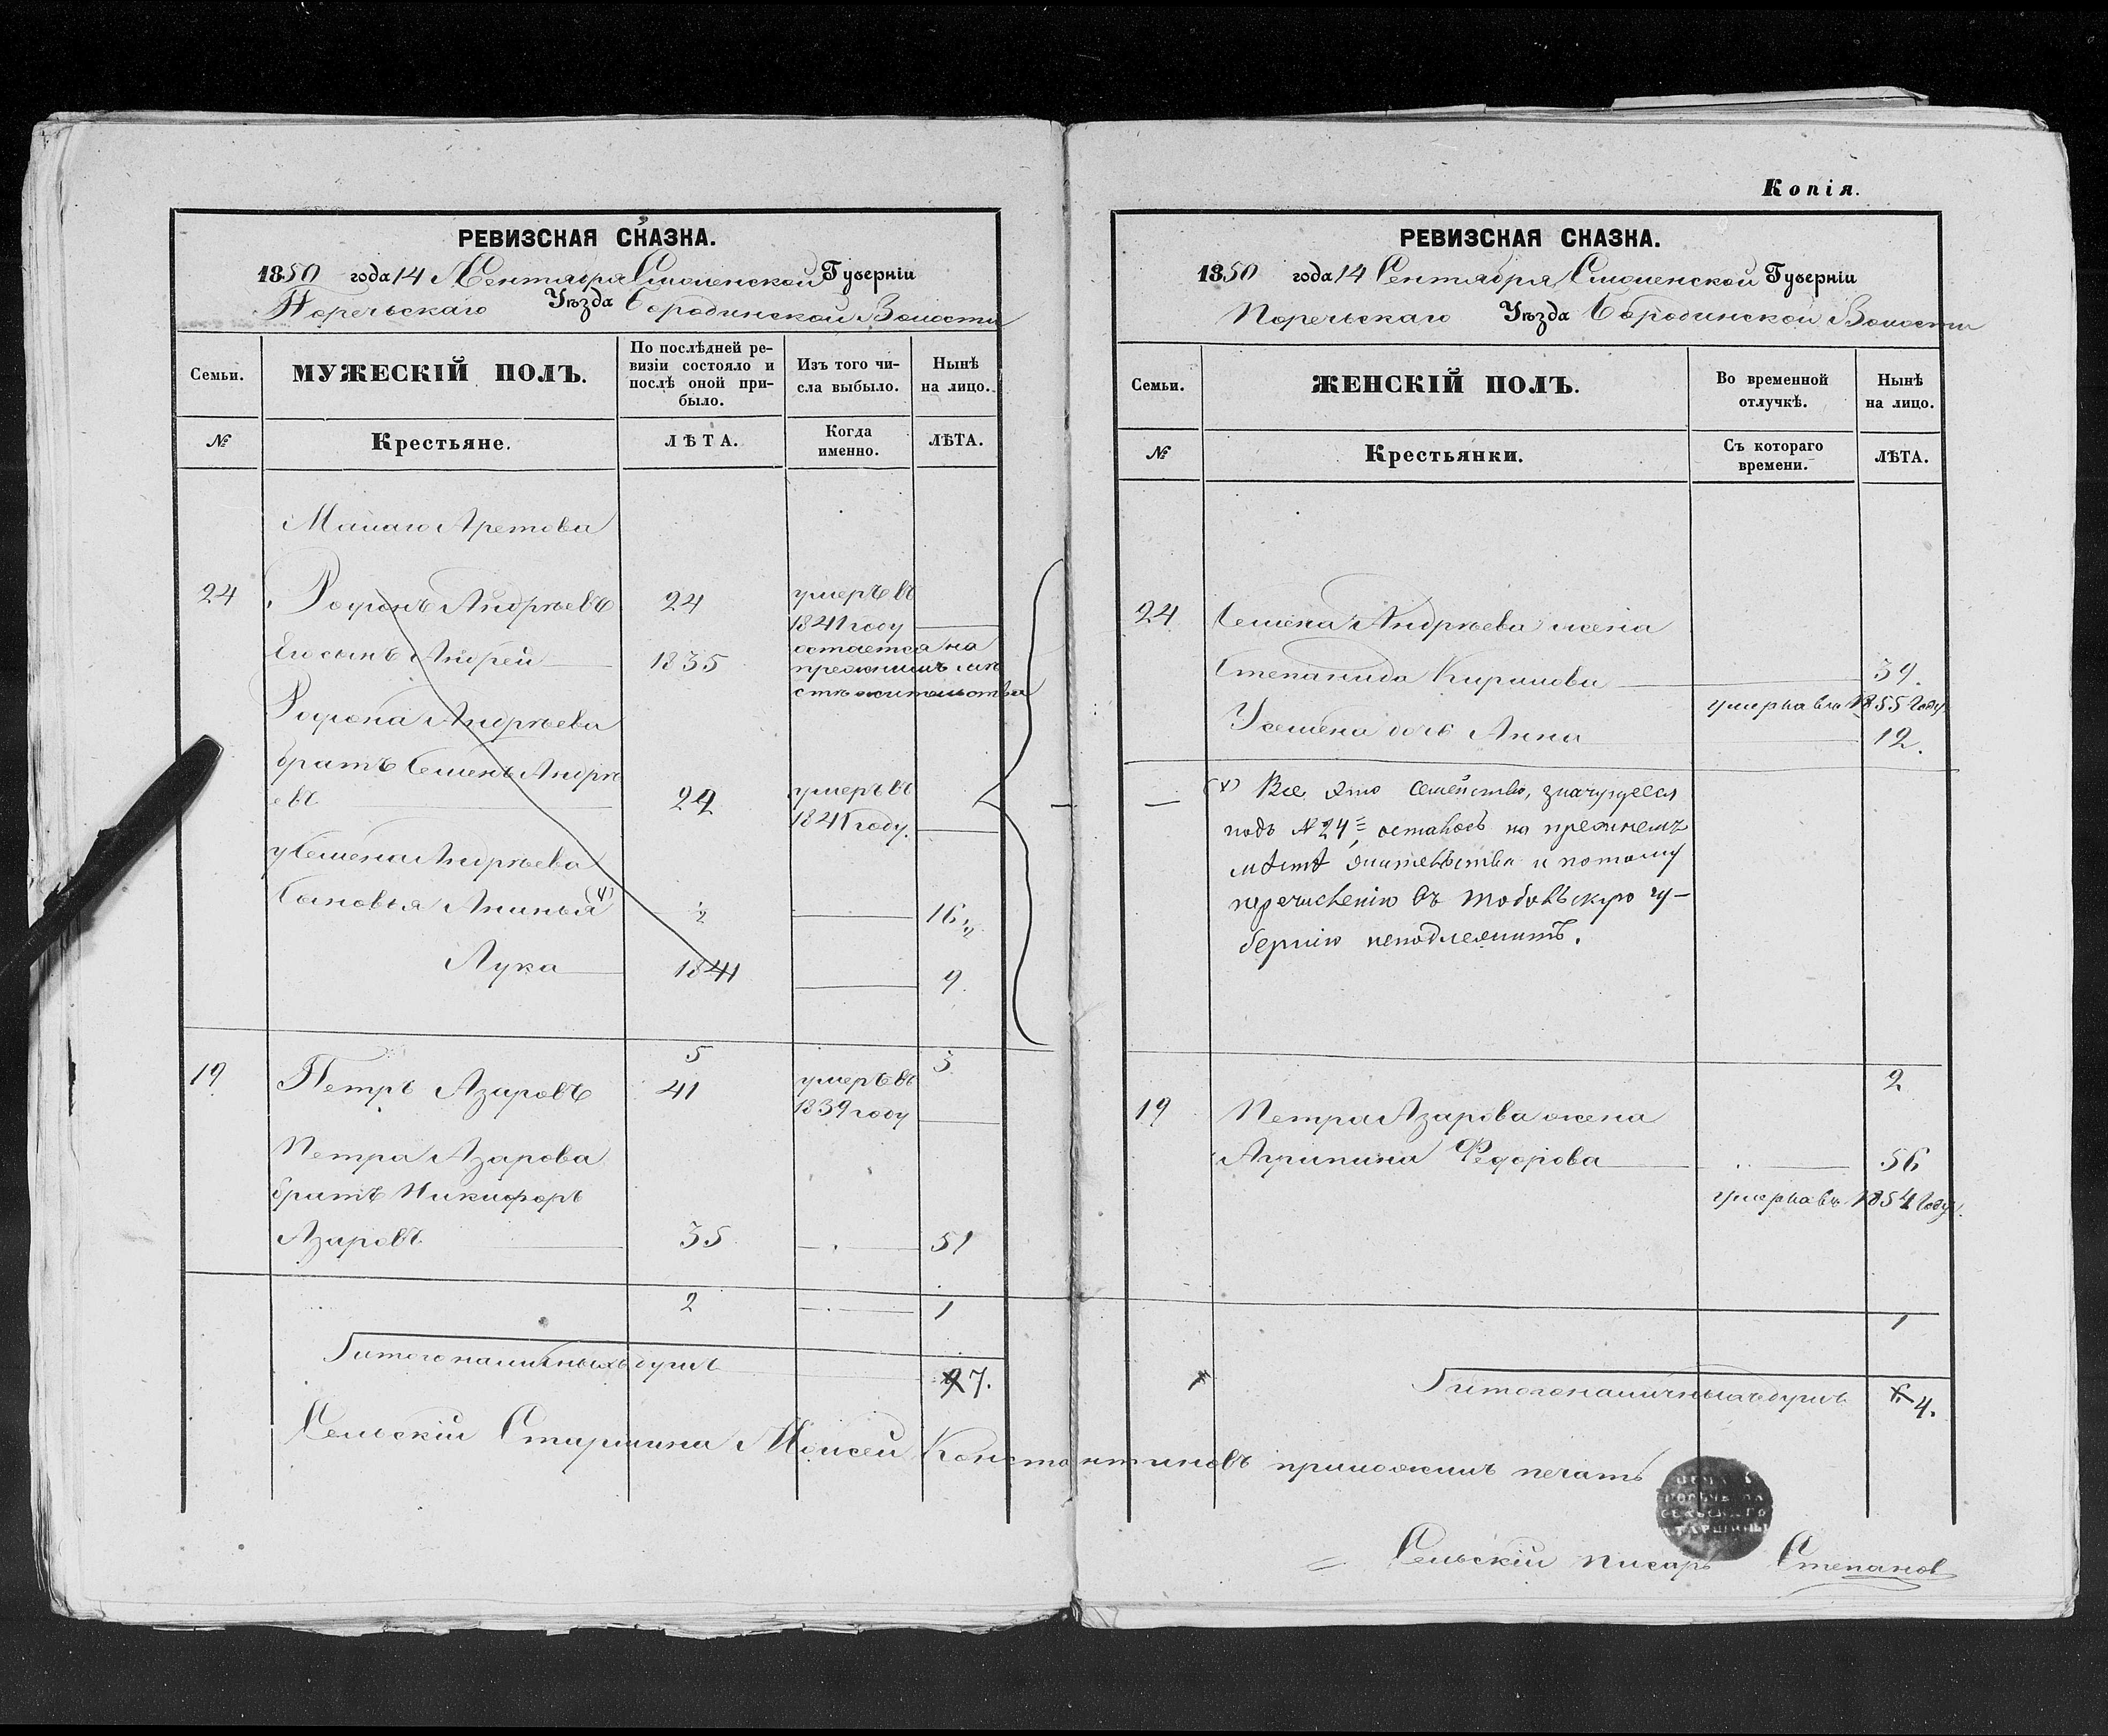 РЕВИЗСКАЯ СКАЗКА.
1850 года 14 Сентября Смоленской Губернiи
Поречьскаго Уѣзда Бородинской Волости
Семьи.
МУЖЕСКIЙ ПОЛЪ.
По послѣдней ре-
визiи состояло и
послѣ оной при-
было.
Изъ того чи-
сла выбыло.
Нынѣ
на лицо.
№
Крестьяне.
ЛѢТА.
Когда
именно.
ЛѢТА.
Малаго Аретова
24 Родiонъ Андрѣевъ 24 умеръ въ
1841 году
Его сынъ Андрей 1835 остается на
прежнимъ мѣ
стѣ жительства
Андрѣева
братъ Семенъ Андрѣ
евъ 24 умеръ въ
1841 году.
у Семена Андрѣева
Сыновья Ананья ½ 16½
Лука 1841 9
5 3
19 Петръ Азаровъ 41 умеръ въ
1839 году
Петра Азарова
братъ Никифоръ
Азаровъ 35 51
2 1
Итого наличныхъ душъ 7.
Сельскiй Старшина Моисей Константиновъ приложилъ печать
Копiя.
РЕВИЗСКАЯ СКАЗКА.
1850 года 14 Сентября Смоленской Губернiи
Поречьскаго Уѣзда Бородинской Волости
Семьи.
ЖЕНСКIЙ ПОЛЪ.
Во временной
отлучкѣ.
Нынѣ
на лицо.
№
Крестьянки.
Съ котораго
времени.
ЛѢТА.
24 Семена Андрѣева жена
Степанида Кирилова 39.
умерла въ 1855 году
У Семена дочь Анна 12.
(х) Все это семейство, значущееся
подъ № 24 осталось на прежнемъ
мѣстѣ жительства и потому
перечисленiю въ Тобольскую гу-
бернiю неподлежитъ.
2
19 Петра Азарова жена
Агрипина Федорова 56
умерла въ 1854 году.
1
Итого наличныхъ душъ 4.
Сельскiй писарь Степанов